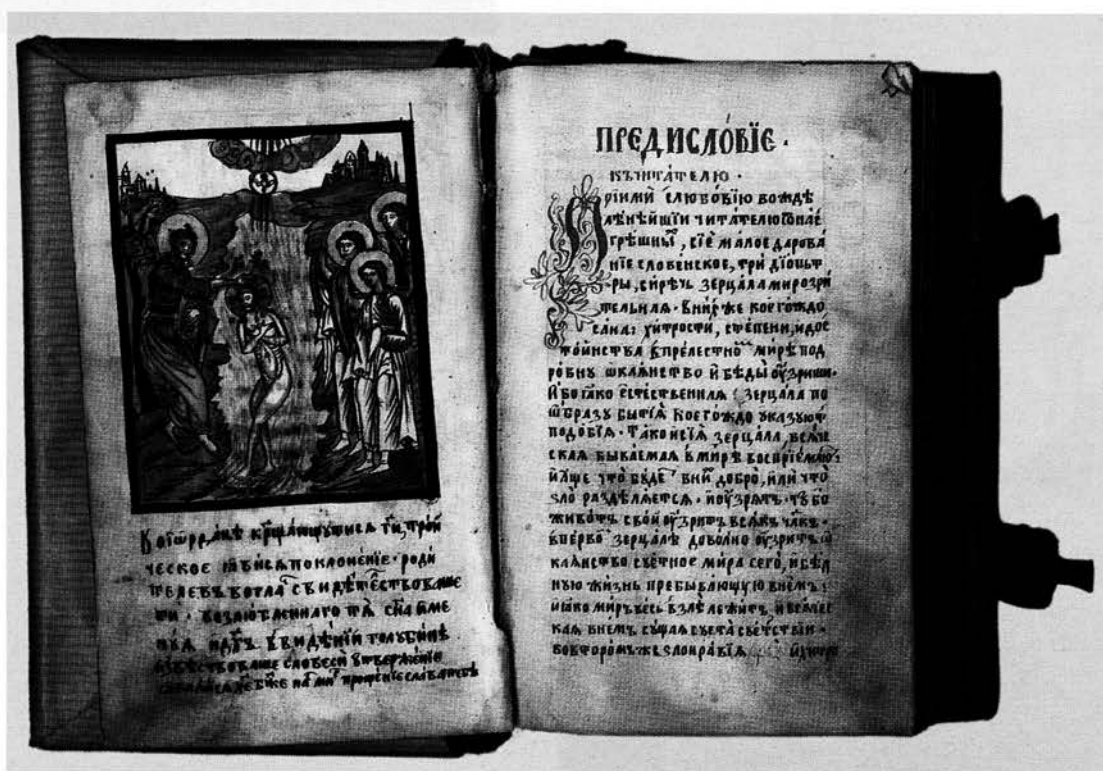 Во іѡрда́нѣ крⷭ҇ща́ющꙋтися ти̑, трои
ческое ꙗ҆ви́ся поклоне́нїе. роди
телевъ бо гла́съ свидѣтелⷭ҇ствоваше
ти. возлю́бленнаго тѧ̀ сн҃а и҆ме
нꙋѧ и҆ дх҃ъ в̾видѣ́нїи голꙋби́нѣ
и҆звѣ́ствоваше словесѐ ᲂу҆тверже́нїе
ПРЕДИСЛО́ВЇЕ.
КЪ ЧИТА́ТЕЛЮ.
Прїимѝ с̾любо́вїю вожде
лѣ́ннѣйшїи читателю ѿ на́съ
грѣ́шныⷯ, сїѐ ма́лое дарова
нїе слове́нское, три дїо́пт
ры, си́рѣчь зерца́ла мирозри
тельная. в̾ни́хже коегождо
са́на: хи́трости, сте́пени, и҆ дос
то́инства в̾пре́лестноⷨ ми́рѣ под
ро́бнꙋ ѡ҆кая́нство и҆ бѣды̀ ᲂу҆́зриши.
И҆́бо ꙗ҆́ко є҆сте́ственная зерца́ла по
ѡ҆́бразꙋ бытїѧ̀ коего́ждо ᲂу҆ка́зꙋютъ
подо́бїя. та́ко и҆ сїѧ̀ зерца́ла, всѧ́че
ская быва́емая в̾ми́рѣ воспрїе́млютъ:
и҆ а҆́ще что̀ бꙋ́детъ в̾ни́хъ добро̀, и҆лѝ что̀
ѕло̀ раздѣля́ется. и҆ ᲂу҆́зрятъ. тꙋ́ бо
живо́тъ сво́й ᲂу҆́зритъ всѧ́къ чл҃къ.
в̾пе́рво зерца́лѣ дово́лно ᲂу҆́зритъ ѡ҆
кая́нство сꙋ́етное ми́ра сегѡ̀, и҆ бѣ́д
нꙋю жи́знь пребыва́ющꙋю в̾не́мъ:
и҆ ꙗ҆́ко ми́ръ ве́сь в̾злѣ̀ лежи́тъ, и҆ всѧ́чес
кая в̾не́мъ сꙋ́щая сꙋета̀ сꙋ́етствїи.
во второ́мъ же ѕлонра́вїя